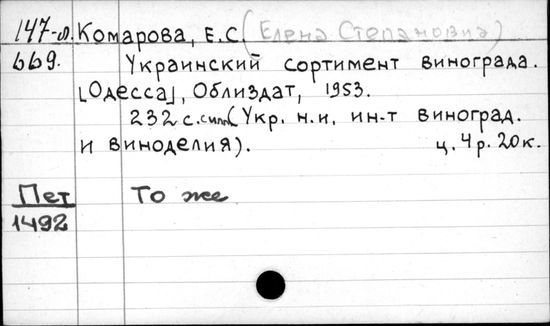 147-л. Комарова, Е.С. (Елена Степановна)
669. Украинский сортимент винограда.
[Одесса], Облиздат, 1953.
232 с. с илл. (Укр. н.и. ин-т виноград.
и виноделия). ц. 4 р. 20 к.
Пет То же
1492